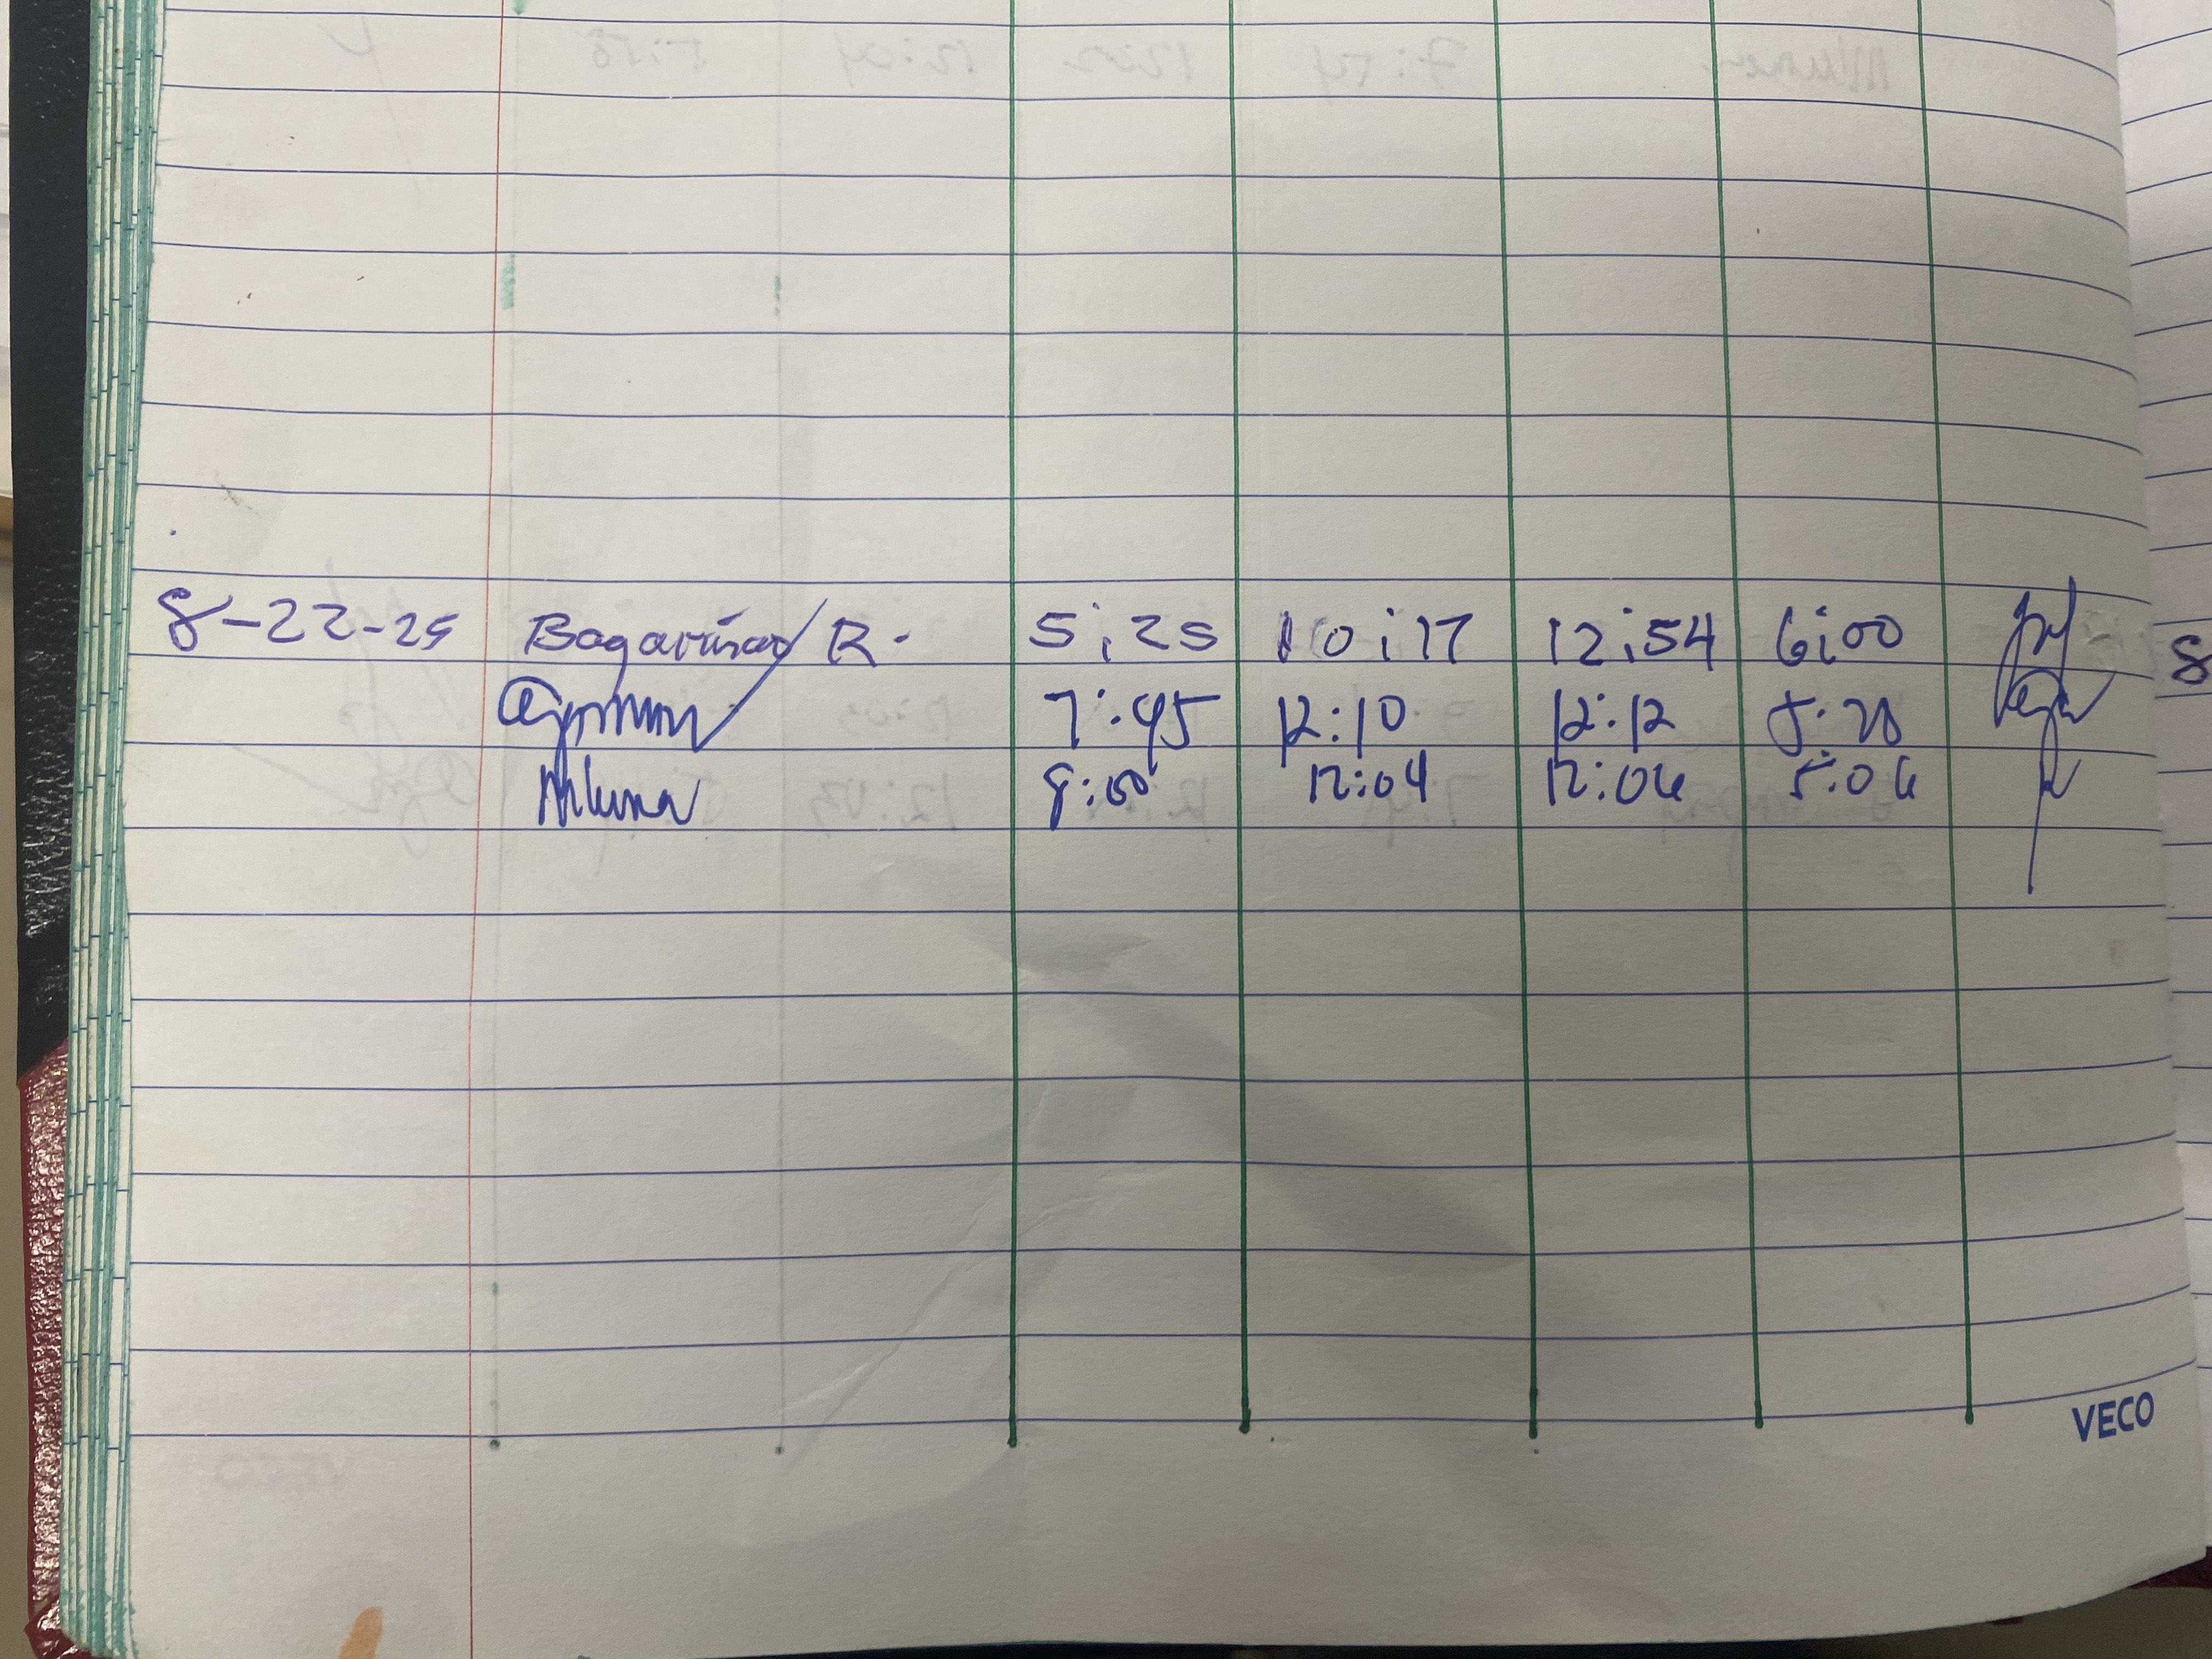 8-22-25 Bagaviñao R. 5:25 10:17 12:54 6:00
7:45 12:10 12:12 5:28
8:00 12:04 12:06 5:06
VECO